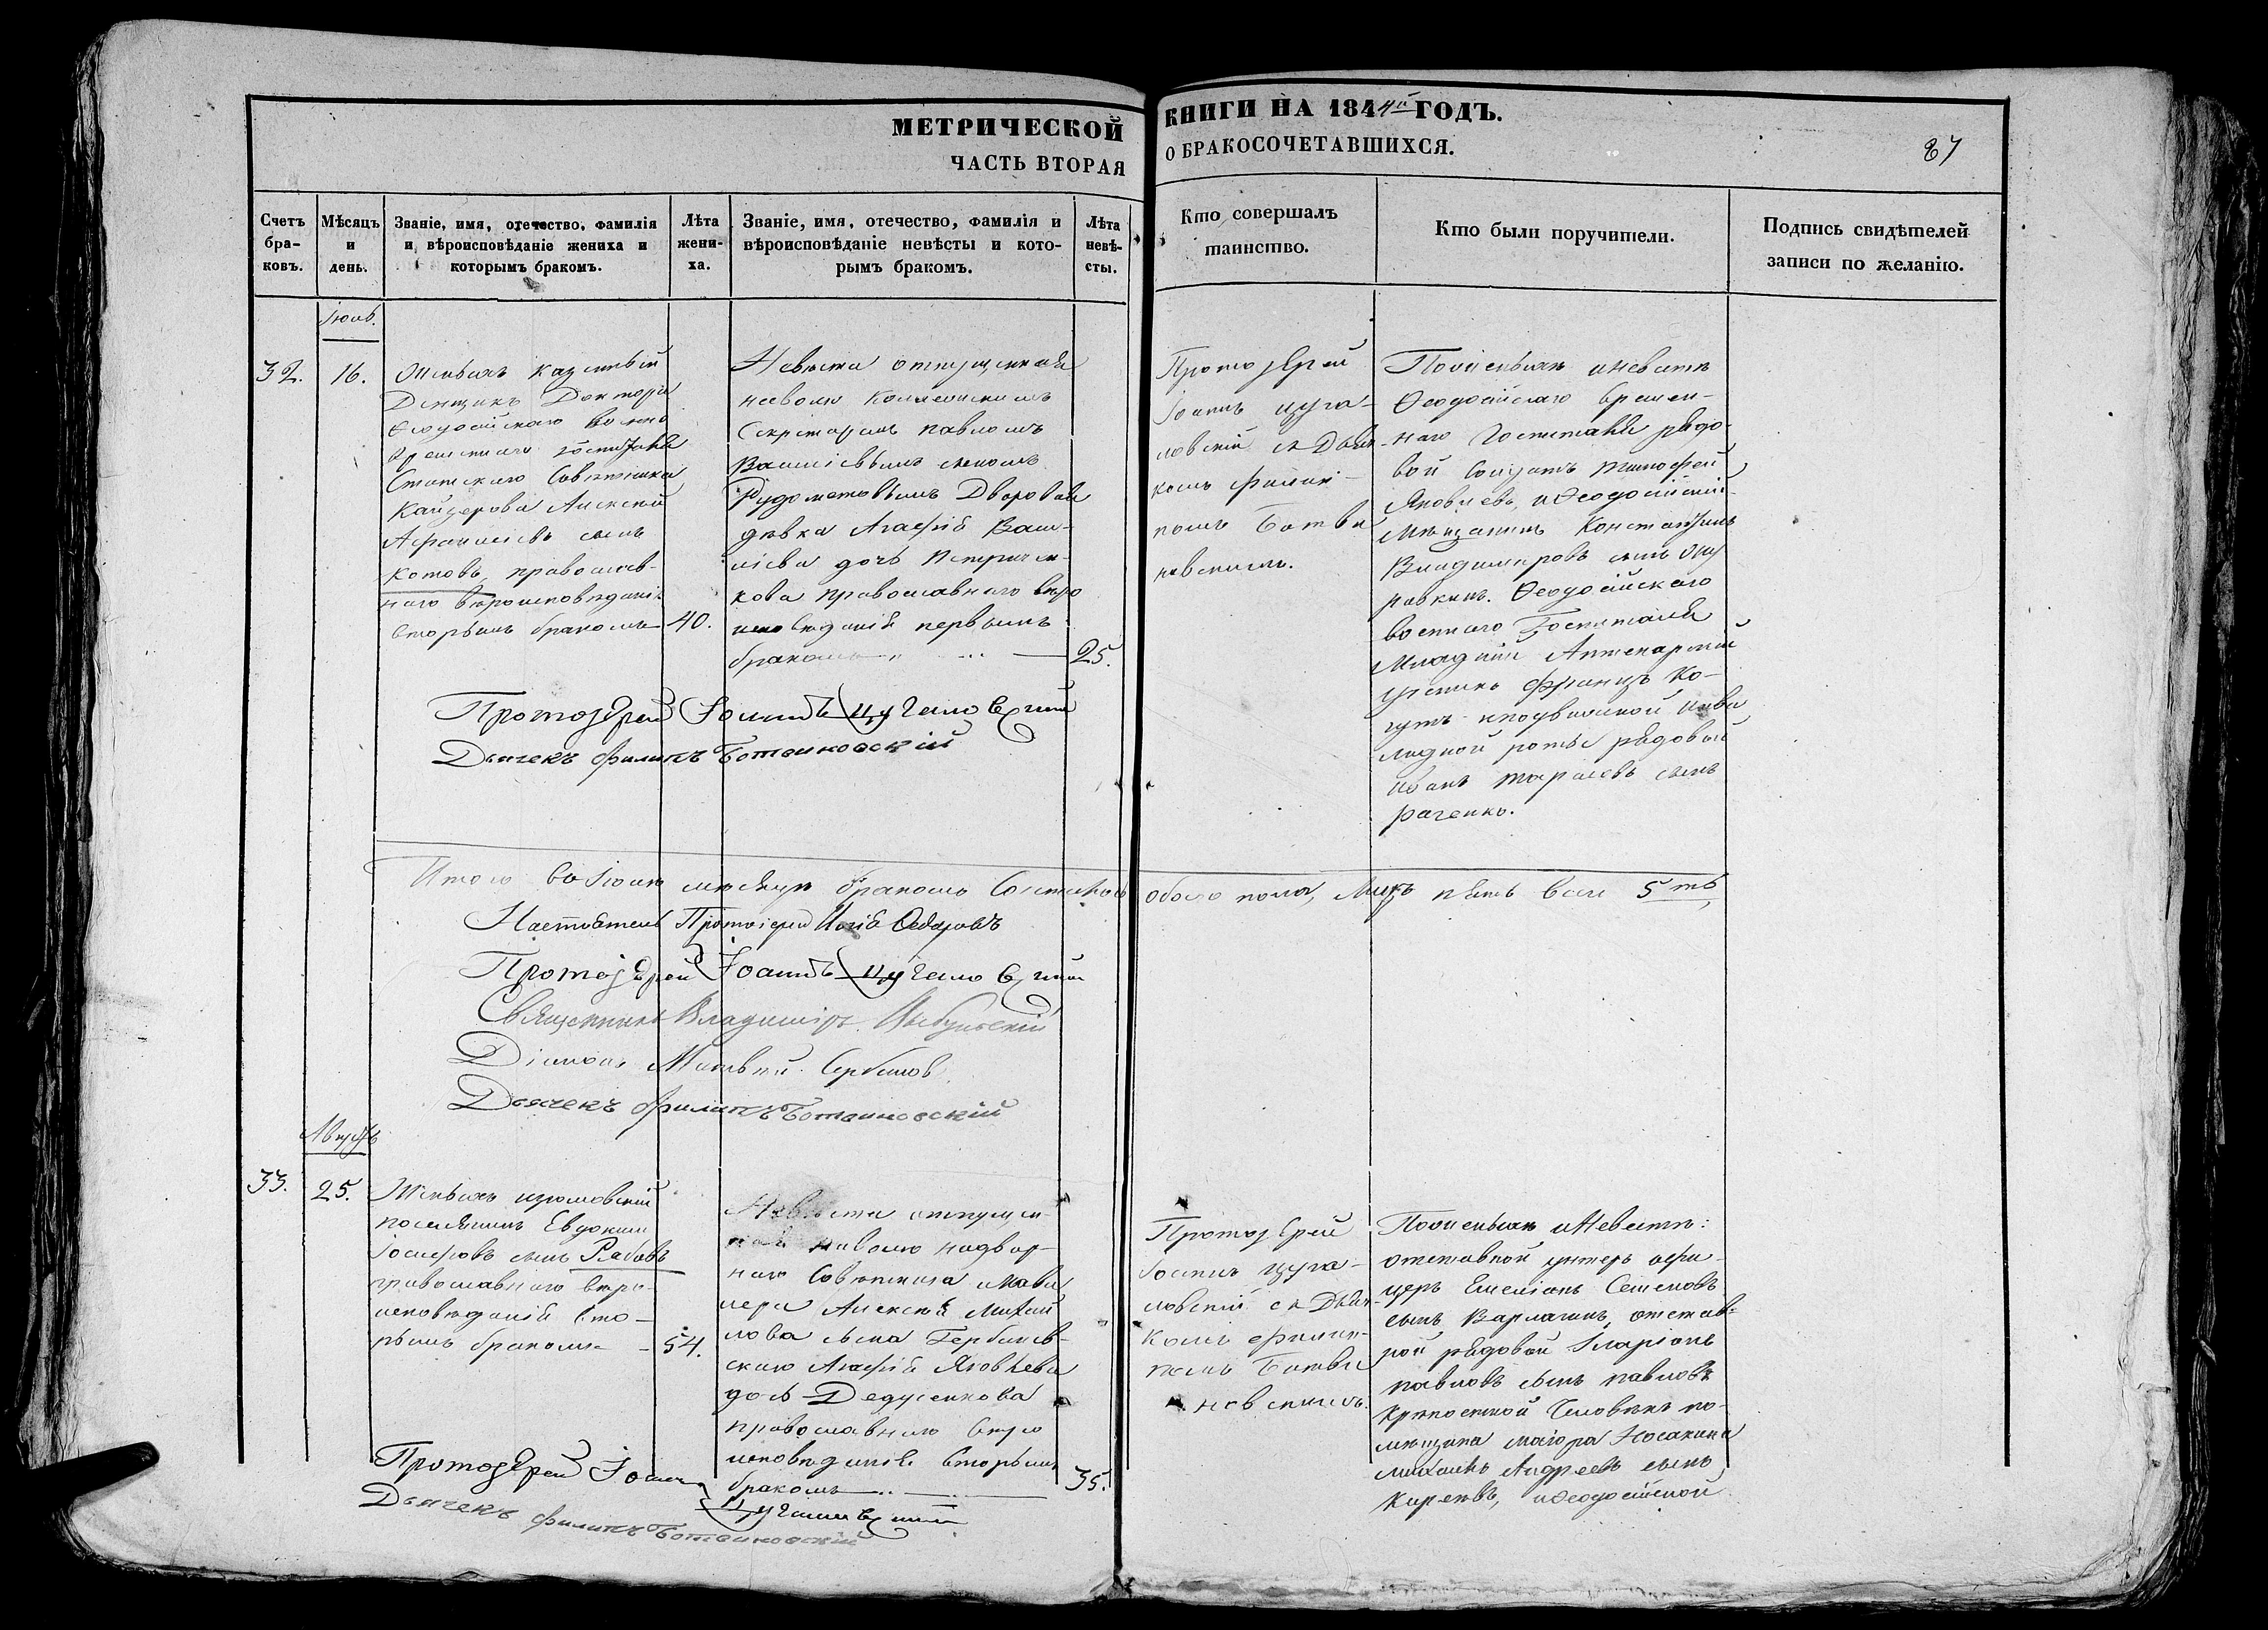 МЕТРИЧЕСКОЙ
КНИГИ НА 1844й ГОДЪ.
ЧАСТЬ ВТОРАЯ
О БРАКОСОЧЕТАВШИХСЯ.
87
Счетъ бра-ковъ.
Мѣсяцъ и день.
Званіе, имя, отечество, фамилія и вѣроисповѣданіе жениха и которымъ бракомъ.
Лѣта жени-ха.
Званіе, имя, отечество, фамилія и вѣроисповѣданіе невѣсты и кото-рымъ бракомъ.
Лѣта невѣ-сты.
Кто совершалъ таинство.
Кто были поручители.
Подпись свидѣтелей записи по желанію.
32.
16.
казенный
Денщикъ Доктора
Ѳеодосійскаго военно
временнаго госпиталя
Статскаго Совѣтника
Кайзерова Алексей
Афанасіевъ сынъ
Котовъ, православ-
наго вѣроисповѣданія
вторымъ бракомъ
40.
Невѣста отпущенная
наволю Коллежскимъ
Секретаремъ павломъ
Василіевымъ сыномъ
Рудометовымъ Дворовая
девка Агафія Васи-
ліева дочь
кова православнаго веро
исповѣданія первымъ
бракомъ
25.
Протоіерей
Іоаннъ цуга-
ловскій съ Дьяч-
комъ филип-
помъ Ботви
новскимъ.
Поженихѣ иневѣстѣ
Ѳеодосійскаго времен-
наго Госпиталя рядо-
вой Солдатъ тимофей
Яковлевъ, иѲеодосійскій
Мѣщанинъ Константинъ
Владимировъ сынъ
Ѳеодосійскаго
военнаго Госпиталя
Младшій Аптекарскій
ученикъ Францъ Ко-
иподвижной инва
лидной роты рядовой
Иванъ Тарасовъ сынъ
раченко.
Протоіерей Іоаннъ Цугаловскій
Дьячекъ Филипъ Ботвиновскій
Итого въ Іюнѣ месяцѣ бракомъ Сочетано обоего пола, Лицъ пять всего 5ть
Настоятель Протоіерей
Протоіерей Іоаннъ Цугаловскій
Священникъ Владиміръ
Діаконъ Матвей Сербинов
Дьячекъ Филипъ Ботвиновскій
Августъ
33.
25.
Женихъ изюмовскій
поселянинъ Евдокимъ
Іосифовъ сынъ Рабовъ
православнаго веро-
исповѣданія вто-
рымъ бракомъ
54.
Невѣста отпущен-
ная наволю надвор-
наго Совѣтника икава
лера Алексѣя Михай
лова сына
скаго Агафія Яковлева
дочь Дедусенкова
православнаго веро
исповѣданія вторымъ
бракомъ
35.
Протоіерей
Іоаннъ цуга-
ловскій съ Дьяч-
комъ филип-
помъ Ботви
новскимъ.
Поженихѣ иНевѣстѣ:
отставной унтеръ офи-
церъ Емеліанъ Семеновъ
сынъ Варлагинъ, отстав-
ной рядовой Іларіонъ
павловъ сынъ павловъ
крѣпостной Человѣкъ по-
мещика маіора Носакина
михаилъ Андреевъ сынъ
Киреевъ, иѲеодосійской
Протоіерей Іоаннъ
Цугаловскій
Дьячекъ Филипъ Ботвиновскій